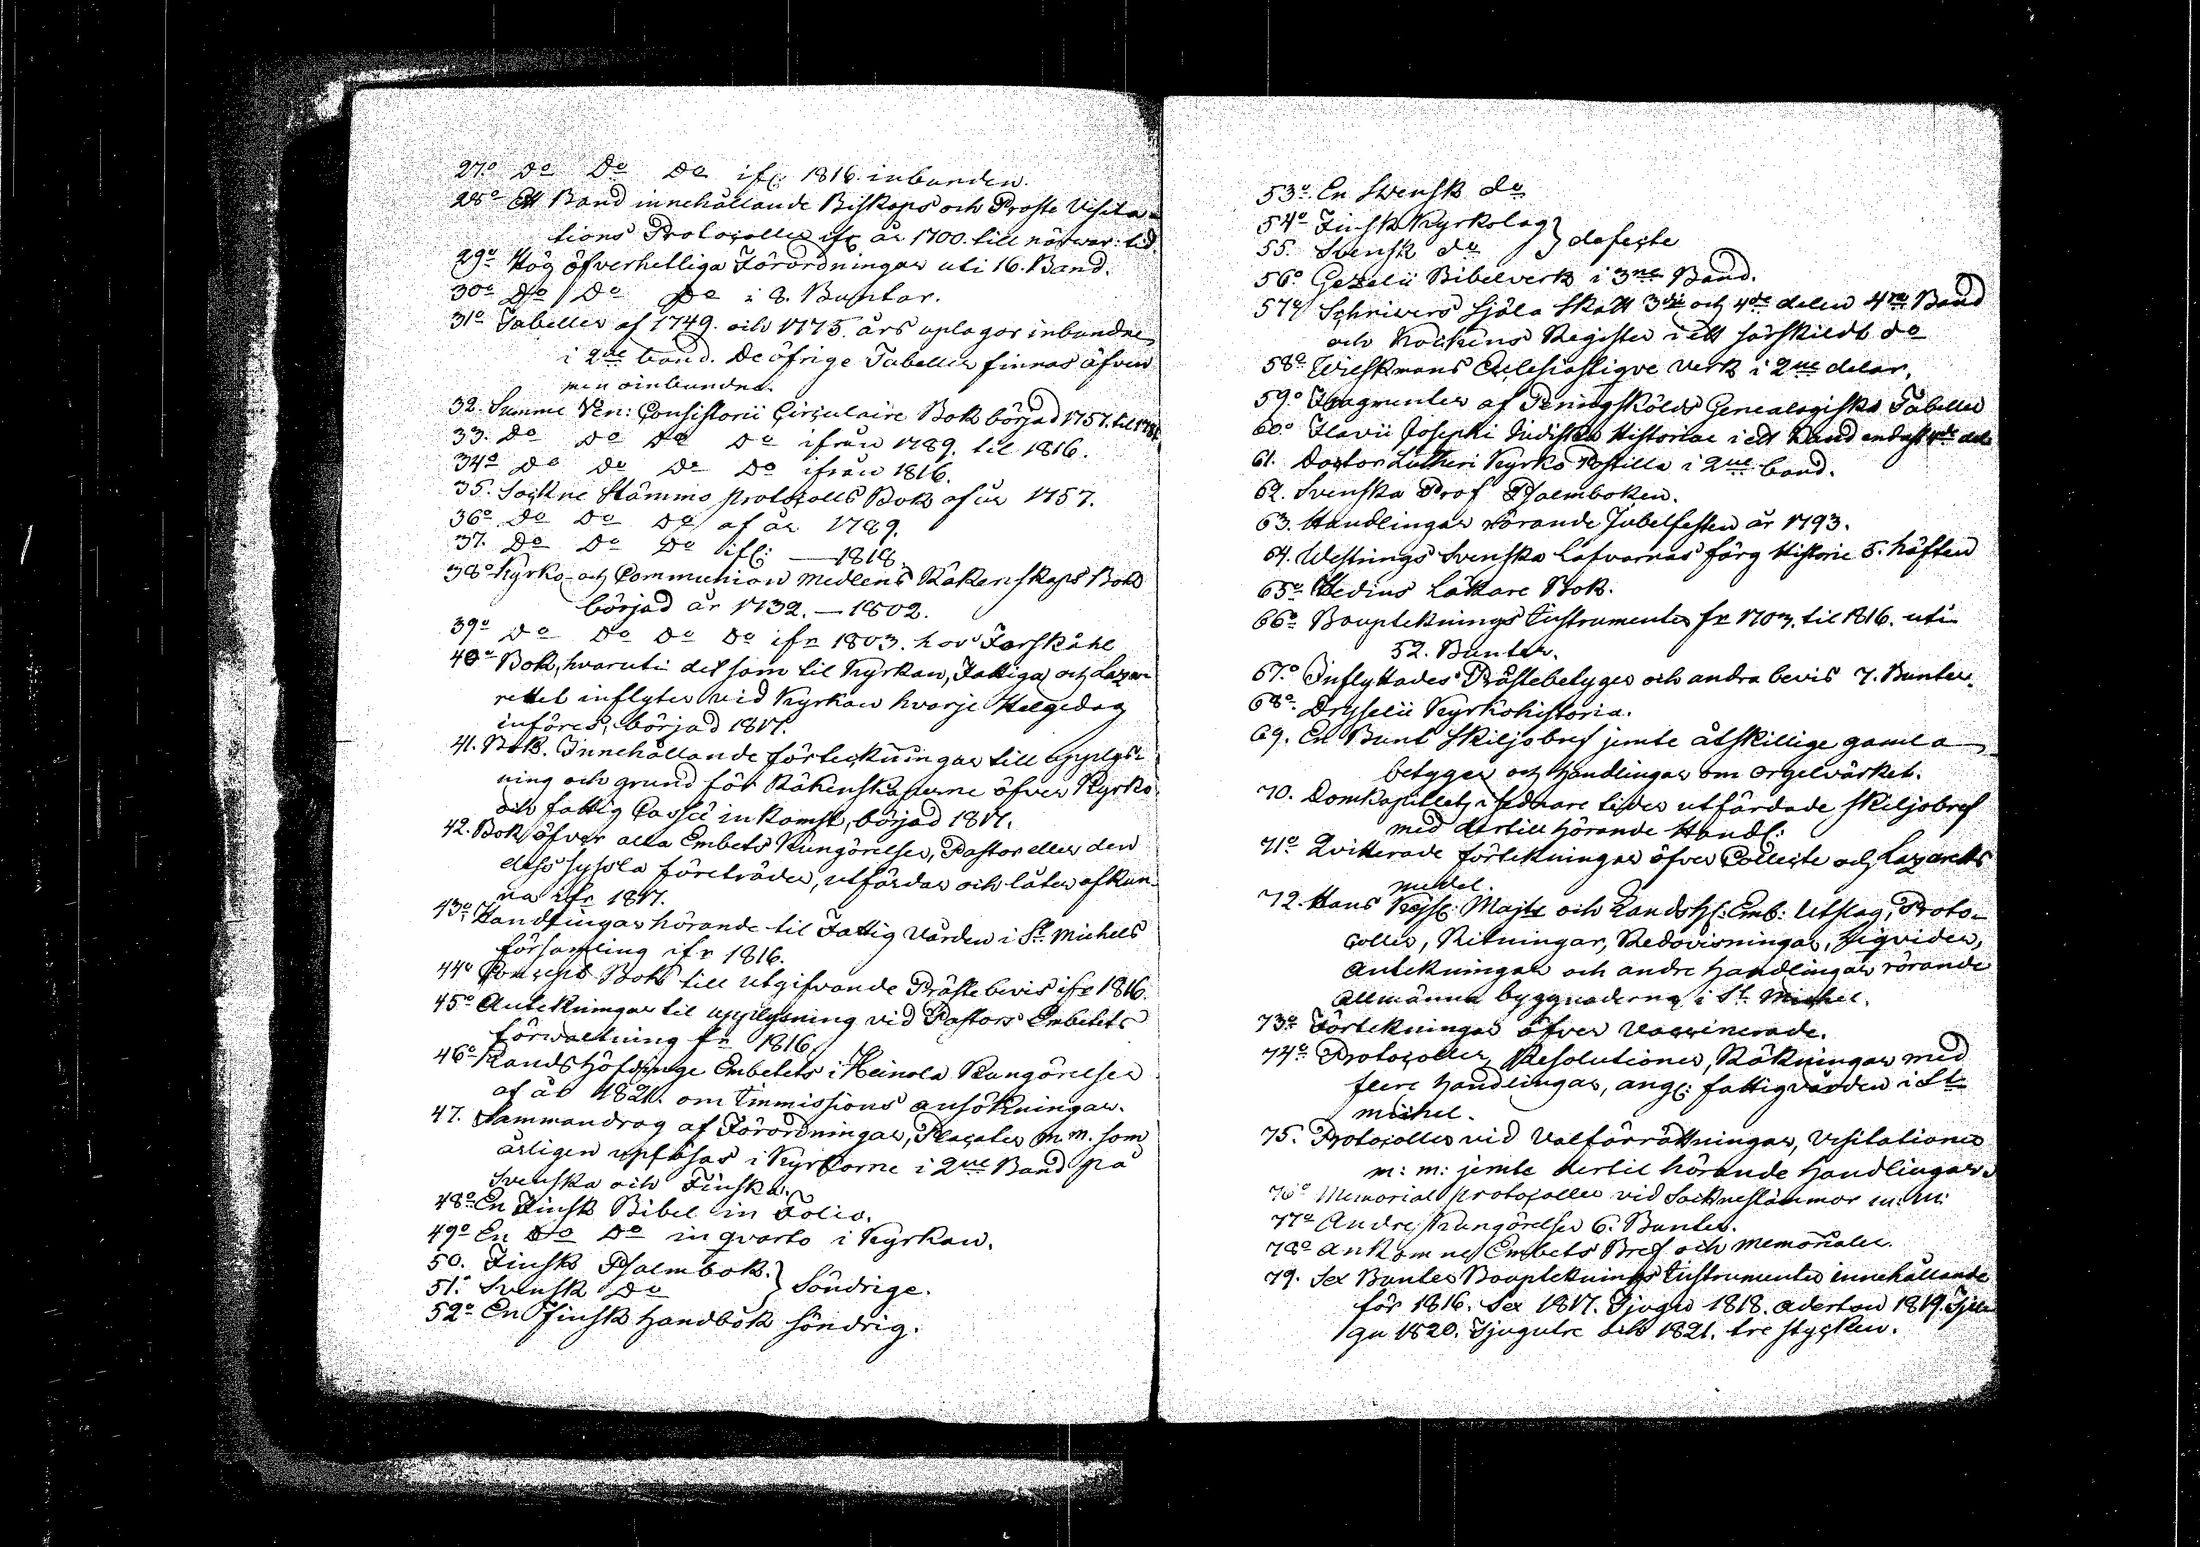 27.o Do Do Do ifr: 1816. inbunden.
28o Ett Band innehållande Biskops och Proste Visita-
tions Protocoller ifr år 1700. till närwar: tid.
29o Hög öfverhetliga Förordningar uti 16. Band.
30o Do Do Do i 8. Buntar.
31o Tabeller af 1749. och 1775. års uplagor inbundne
i 2ne band. De öfrige Tabeller finnas äfven
men oinbundne.
32. Summe Ven: Consistorii Circulaire Bok börjad 1757. til
33. Do Do Do Do ifrån 1789. til 1816.
34o Do Do Do Do ifrån 1816.
35. Sockne Stämmo protocolls Bok af år 1757.
36o Do Do Do af år 1789.
37. Do Do Do ifr: — 1818.
38o Kyrko- och Communion Medlens Räkenskaps Bok
börjad år 1732. — 1802.
39o Do Do Do Do ifr 1803. hos Forskåhl
40o Bok, hvaruti det som til Kyrkan, Fattiga och Laza-
rettet inflyter vid Kyrkan hvarje Helgedag
införes, börjad 1817.
41. Bok. Innehållande förteckningar till upplys-
ning och grund för Räkenskaperne öfver Kyrko
och fattig Cassæ inkomst, börjad 1817.
42. Bok öfver alla Embets Kungörelser, Pastor eller den
dess syssla företräder, utfärdar och låter afkun-
na ifr 1817.
43o Handlingar hörande til Fattig Vården i St Michels
församling ifr 1816.
44o Concept Bok till utgifvande Prästebevis ifr 1816.
45o Antekningar til upplysning vid Pastors Embetets
förwaltning fr 1816.
46o Landshöfdinge Embetets i Heinola Kungörelser
af år 1821. om Immissions ansökningar.
47. Sammandrag af Förordningar, Placater m.m. som
årligen upläsas i Kyrkorne i 2ne Band på
Svenska och Finska.
48o En Finsk Bibel in Folio.
49o En Do Do in qvarto i Kyrkan.
50. Finsk Psalmbok. }
51.o Svensk Do } Söndrige.
52o En Finsk Handbok söndrig.
53o. En Swensk do
54o Finsk Kyrkolag }
55. Svensk do } defecte
56o Gezelii Bibelverk i 3ne Band.
57 Schrivers Sjöla Skatt 3dje och 4de delen 4ra Band
och Register i ett särskildt do
58o Wilskmans Eclesiastiqve verk i 2ne delar.
59.o Fragmenter af Peringskölds Genealogiska Tabeller
60o Flavii Josephi Judiska Historiae i ett Band endast del
61. Doctor Lutheri Kyrko Postilla i 2ne band.
62. Svenska Prof Psalmboken.
63. Handlingar rörande Jubelfesten år 1793.
64. Westrings Svenska Lafvarnas färg Historie 5. häften
65o Hedins Läkare Bok.
66o Bouptecknings Instrumenter fr 1703. til 1816. uti
52. Bunter.
67.o Inflyttades Prästebetyger och andra bevis 7. Bunter.
68o. Dryselii Kyrkohistoria.
69. En Bunt Skiljobref jemte åtskillige gamla
betyger och handlingar om orgelvärket.
70. Domkapitlets i sednare tider utfärdade skiljobref
med dertill hörande Handl:
71o Qvitterade förtekningar öfver Collecte och Lazaretts
medel.
72. Hans Kejs: Majts och Landsh: Emb: Utslag, Proto-
coller, Ritningar, Redovisningar, Liqvider,
Antekningar och andre handlingar rörande
allmänna byggnaderna i St Michel.
73o Förtekningar öfver vaccinerade.
74o Protocoller, Resolutioner, Räkningar med
flere handlingar, ang: fattigvården i St
Michel.
75. Protocoller vid Valförrättningar, Visitationer
m: m: jemte dertil hörande Handlingar
76o Memorial protocoller vid Socknestämmor m: m:
77o Andre Kungörelser 6. Bunter.
78o Ankomne Embets Bref och Memorialer.
79. Sex Bunter Bouptecknings Instrumenter innehållande
för 1816. Sex 1817. Tjugu 1818. aderton 1819. Tju
gu 1820. Tjugutre och 1821. tre stycken.